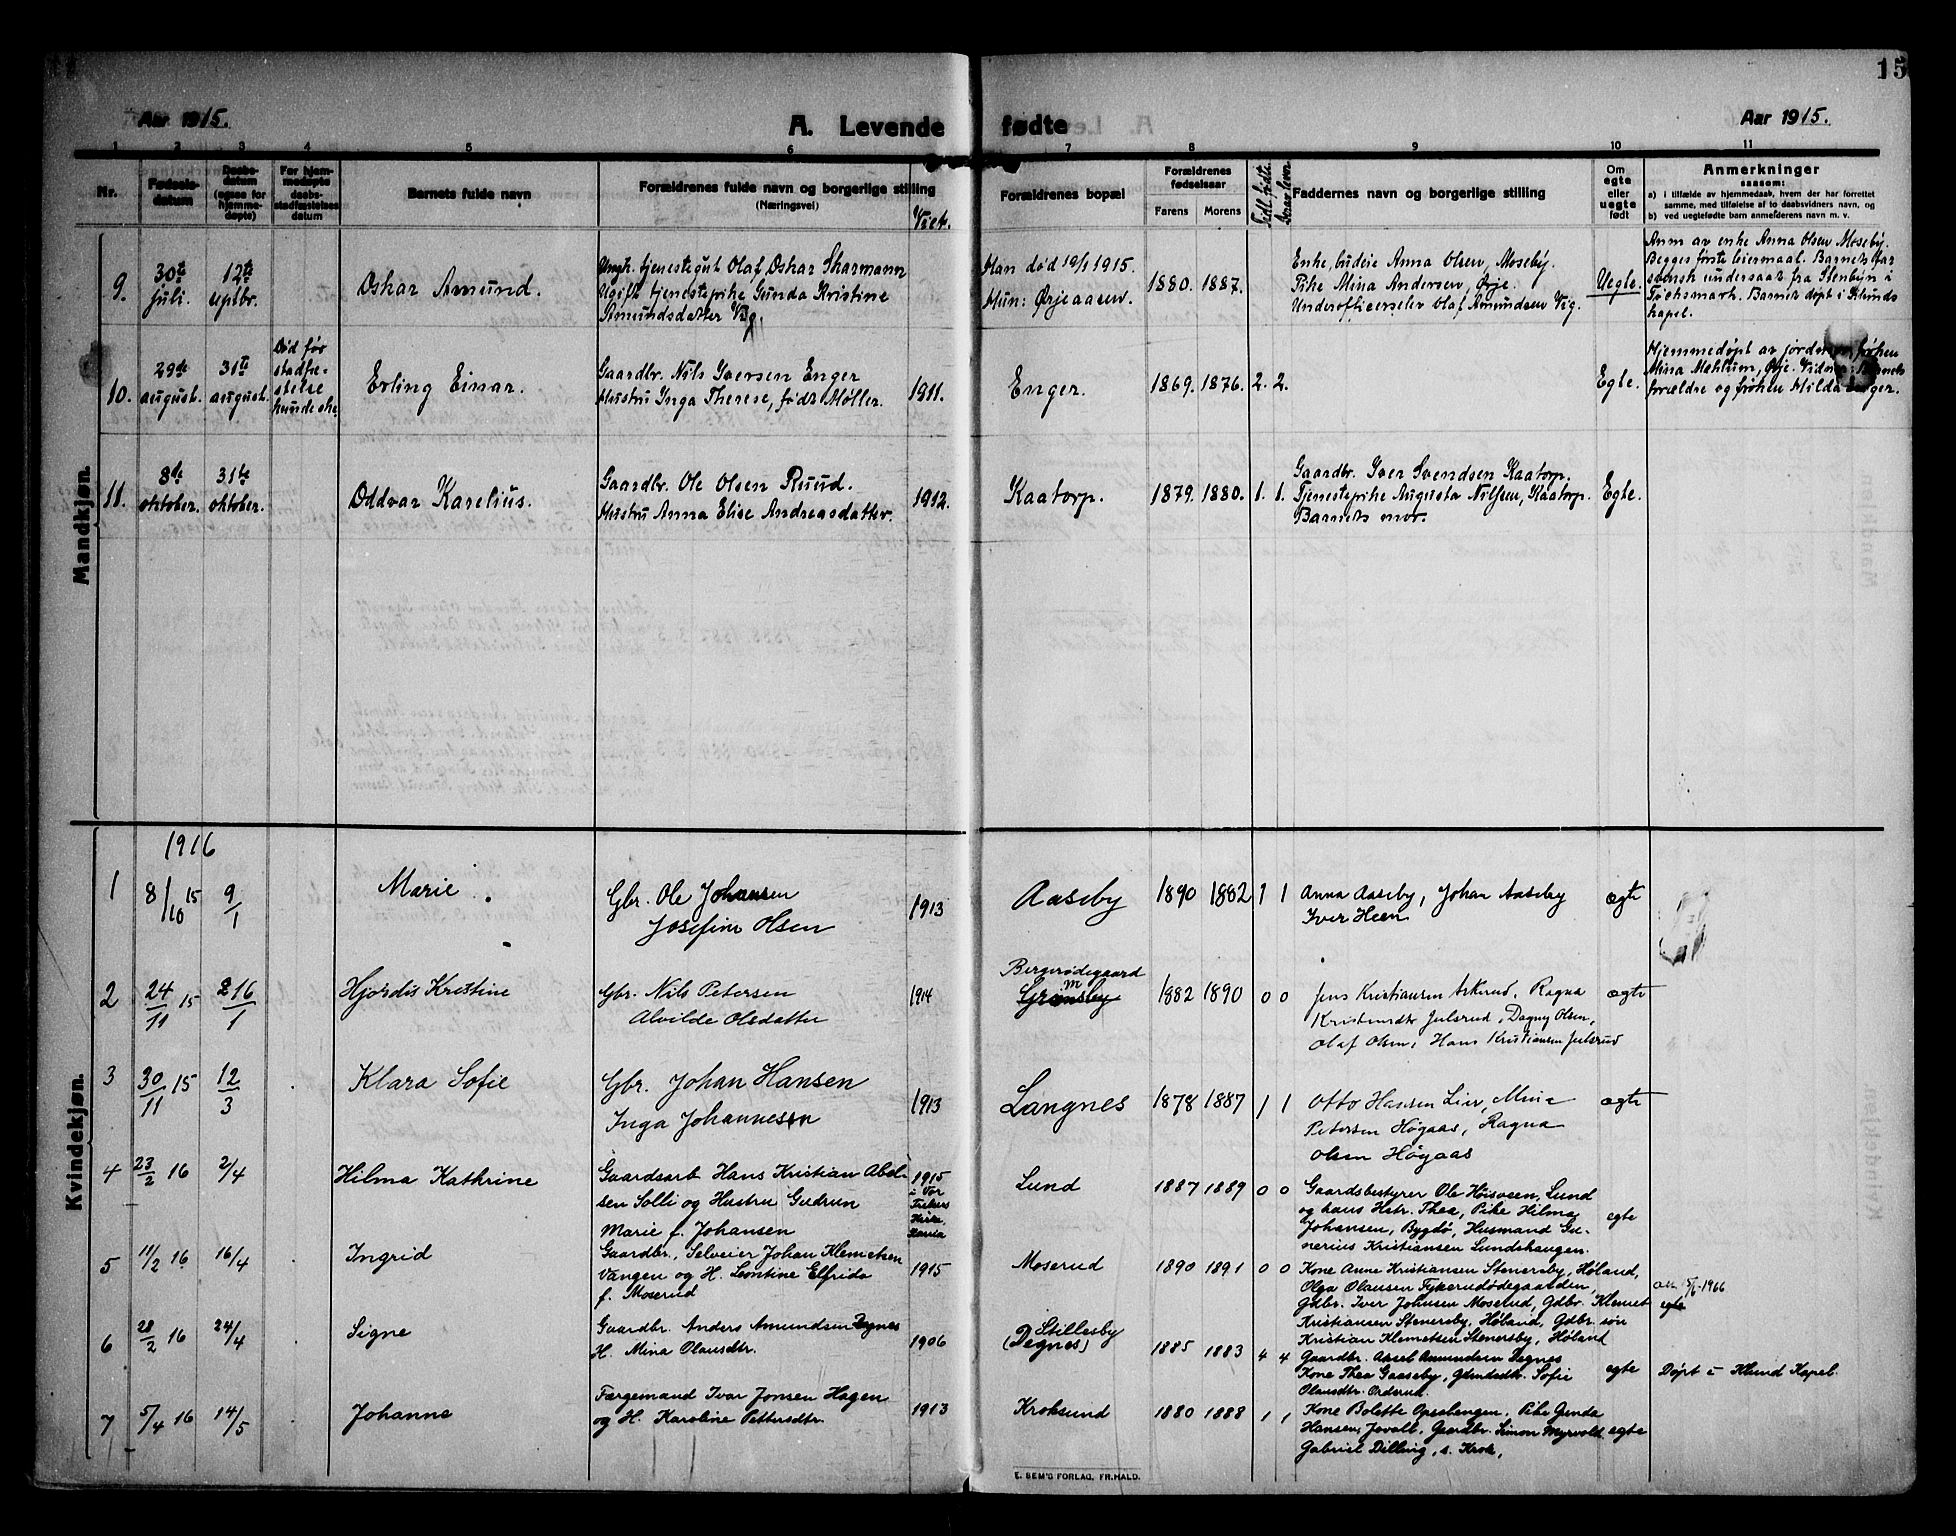 15
Aar 1915.
A. Levende fødte
Aar 1915.
1 2 3 4 5 6 7 8 9 10 11
Nr.
Fødsels-
datum
Daabs-
datum
(ogsaa for
hjemme-
døpte)
For hjem-
medøpte
daabs-
stadfæstelses
datum
Barnets fulde navn
Forældrenes fulde navn og borgerlige stilling
(Næringsvei)
Viet.
Forældrenes bopæl
Forældrenes
fødselsaar
Farens Morens
Tidl. fødte.
Derav lever.
Faddernes navn og borgerlige stilling
Om
egte
eller
uegte
født
Anmerkninger
saasom:
a) i tilfælde av hjemmedaab, hvem der har forrettet
samme, med tilføielse av to daabsvidners navn, og
b) ved uegtefødte barn anmelderens navn m. v.
Mandkjøn.
9.
30te
juli.
12te
septbr.
Oskar Amund.
Ungk. tjenestegut Olaf Oskar Skarmann
Ugift tjenestepike Gunda Kristine
Amundsdatter Vig
Han død 19/1 1915.
Hun: Ørjeaasen.
1880. 1887.
Enke, budeie Anna Olsen, Moseby.
Pike Mina Andersen, Ørje.
Underofficerselev Olaf Amundsen Vig.
Uegte.
Anm av enke Anna Olsen Moseby.
Begges første leiermaal. Barnets far
svensk undersaat fra Stenbyn i
Barnet døpt i Klunds
kapel.
10.
29de
august.
31te
august.
Død før
stadfæ-
stelse
kunde ske
Erling Einar.
Gaardbr. Nils Iversen Enger
Hustru Inga Therese, født Møller.
1911.
Enger.
1869. 1876. 2. 2.
Egte.
Hjemmedøpt av jordmor, frøken
Mina Mehlum, Ørje. Vidner: Barnets
forældre og frøken Hilda Enger.
11.
8de
oktober.
31te
oktober.
Oddvar Karelius.
Gaardbr. Ole Olsen Ruud.
Hustru Anna Elise Andreasdatter.
1912.
Kaatorp.
1879. 1880. 1. 1.
Gaardbr. Iver Svendsen Kaatorp.
Tjenestepike Augusta Nilsen, Kaatorp.
Barnets mor.
Egte.
Kvindekjøn.
1916
1
8/10 15
9/1
Marie
Gbr. Ole Johansen
Josefine Olsen
1913
Aaseby
1890 1882 1 1
Anna Aaseby, Johan Aaseby
Iver Heen
ægte
2
24/11 15
16/1
Hjordis Kristine
Gbr. Nils Petersen
Alvilde Olsdatter
1914
Bergerødegaard
1882 1890 0 0
Jens Kristiansen Askerud, Ragna
Kristiansdtr Julsrud, Dagny Olsen,
Olaf Olsen, Hans Kristiansen Julsrud
ægte
3
30/11 15
12/3
Klara Sofie
Gbr. Johan Hansen
Inga Johannessen
1913
Langnes
1878 1887 1 1
Otto Hansen Lier, Mina
Petersen Høgaas, Ragna
Olsen Høgaas
ægte
4
23/2 16
2/4
Hilma Kathrine
Gaardsarb Hans Kristian Abel-
sen Solli og Hustru Gudrun
Marie f. Johansen
1915
i Vor
Frelsers
Kirke
Lund
1887 1889 0 0
Gaardsbestyrer Ole Høisveen, Lund
og hans Hstr. Thea, Pike Hilma
Johansen, Bygdø, Husmand Gu-
nerius Kristiansen Lundshaugen.
egte
5
11/2 16
16/4
Ingrid
Gaardbr., Selveier Johan Klemetsen
Vangen og H. Leontine Elfrida
f. Moserud
1915
Moserud
1890 1891 0 0
Kone Anne Kristiansen Stenersby, Høland,
Olga Olausen Fykerudødegaarden,
Gdbr. Iver Johnsen Moserud, Gdbr. Klemet
Kristiansen Stenersby, Høland, Gdbr søn
Kristian Klemetsen Stenersby, Høland
egte
1966
6
28/2 16
24/4
Signe
Gaardbr. Anders Amundsen Degnes
H. Mina Olausdtr.
1906
Stillesby
(Degnes)
1885 1883 4 4
Gaardbr. Aksel Amundsen Degnes
Kone Thea Gaaseby, Sofie
Olausdtr. Orderud.
egte
Døpt i Klund Kapel.
7
5/4 16
14/5
Johanne
Færgemand Ivar Jonsen Hagen
og H. Karoline Pettersdtr.
1913
Kroksund
1880 1888 1 1
Kone Bolette Opsahengen, Pike Gunda
Hansen, Jovall, Gaardbr. Simon Myrvold
Gabriel Dilling, s. Krok,
egte
E. SEM'S FORLAG, FR.HALD.